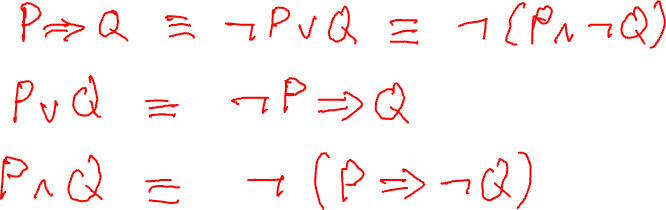 P ⇒ Q ≡ ¬P ∨ Q ≡ ¬(P ∧ ¬Q)
P ∨ Q ≡ ¬P ⇒ Q
P ∧ Q ≡ ¬(P ⇒ ¬Q)